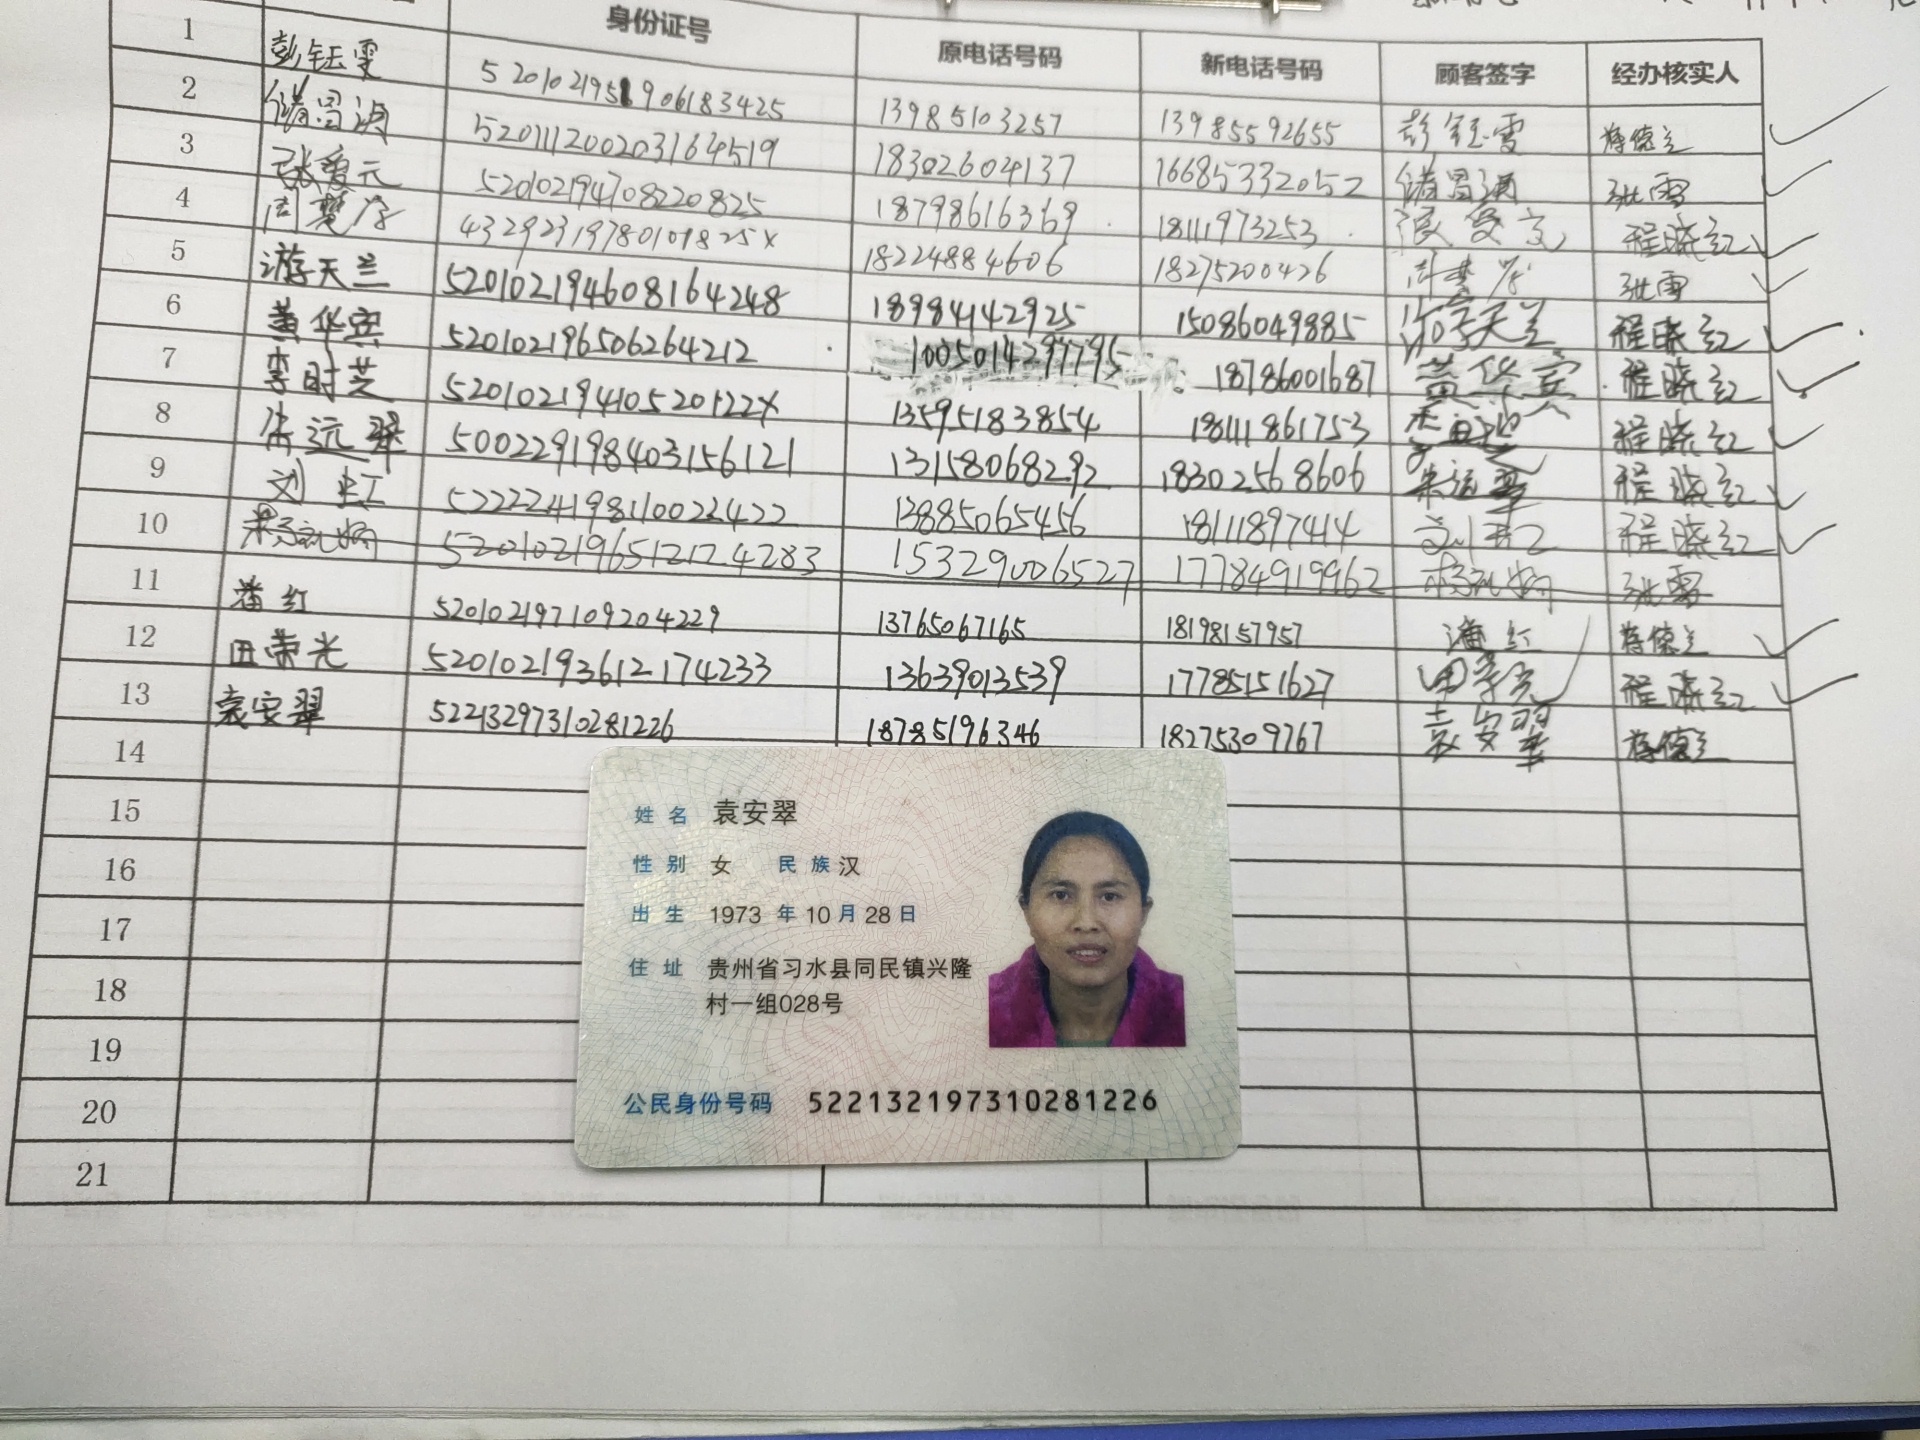 身份证号 原电话号码 新电话号码 顾客签字 经办核实人
1 彭钰雯 13985103257 13985592655 彭钰雯 蒋德兰
2 储昌 520111200203164519 18302604137 16685332052 储昌 张雪
3 张爱元 520102194708220825 18798616369 18111973253 程晓红
4 18224884606 18275200426 张雪
5 游天兰 520102194608164248 18984142925 15086049885 游天兰 程晓红
6 黄华宾 520102196506264212 18786001687 黄华宾 程晓红
7 李时芝 52010219410520122X 13595183854 18111861753 程晓红
8 朱远翠 500229198403156121 13158068292 18302568606 朱远翠 程晓红
9 刘虹 522224198110022422 13885065456 18111897414 刘虹 程晓红
10 520102196512124283 15329006527 17784919962 张雪
11 潘红 520102197109204229 13765067165 18198157957 潘红 蒋德兰
12 田荣光 520102193612174233 13639013539 17785151627 田荣光 程晓红
13 袁安翠 52213297310281226 18785196346 18275309767 袁安翠 蒋德兰
14
15
16
17
18
19
20
21
姓名 袁安翠
性别 女 民族 汉
出生 1973 年 10 月 28 日
住址 贵州省习水县同民镇兴隆
村一组028号
公民身份号码 522132197310281226